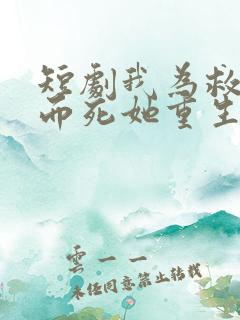 短劇我為救
而死她重生
雲一一
未經同意禁止轉載